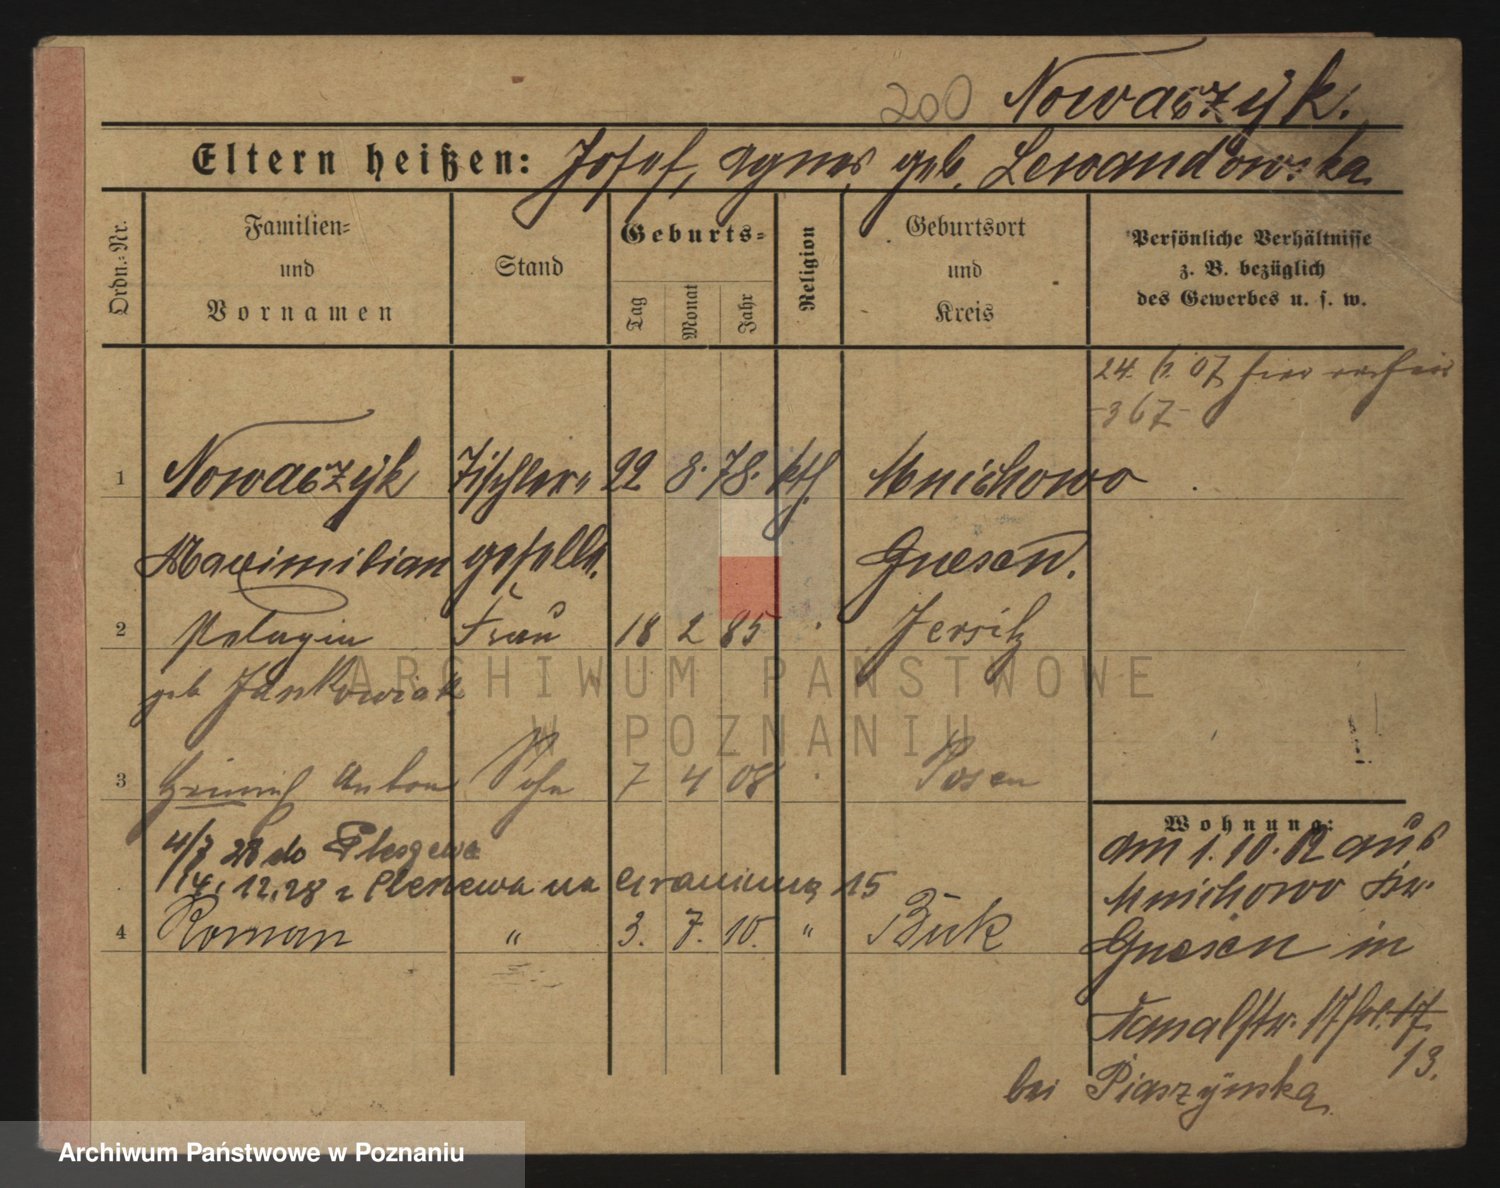 200 Nowaczyk.
Eltern heißen: Josef, Agnes geb. Lewandowska
Ordn.=Nr.
Familien=
und
Vornamen
Stand
Geburts=
Tag Monat Jahr
Religion
Geburtsort
und
Kreis
Persönliche Verhältnisse
z. B. bezüglich
des Gewerbes u. s. w.
24. 07 hier
-367-
1 Nowaczyk Tischler= 22 8. 78. kth. Mnichowo
Maximilian geselle. Gnesen.
2 Pelagia Frau 18 2 85 Jersitz
geb Jankowiak
ARCHIWUM PAŃSTWOWE
W POZNANIU
3 Heinrich Anton Sohn 7 4 08 Posen
Wohnung:
4/7 28 do Pleszewa
14. 12. 28 z Pleszewa na Graniczną 15
4 Roman " 3. 7. 10. " Buk
am 1. 10. 02 aus
Mnichowo Kr.
Gnesen in
Kanalstr. 17 17.
13.
bei Piaszynska
Archiwum Państwowe w Poznaniu